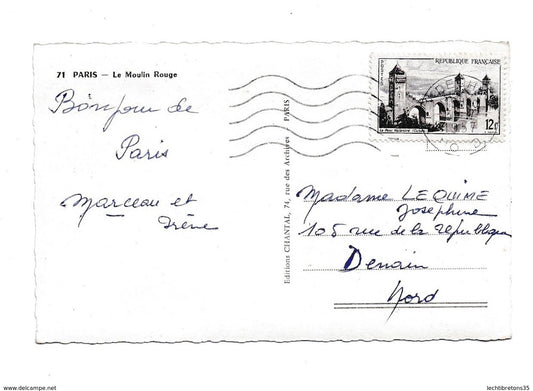 71 PARIS — Le Moulin Rouge
Bonjour de
Paris
Marceau et
Irène
Editions CHANTAL, 74, rue des Archives - PARIS
REPUBLIQUE FRANÇAISE
POSTES
12F
Madame LEQUIME
Josephine
105 rue de la République
Denain
Nord
www.delcampe.net
lechtibretons35